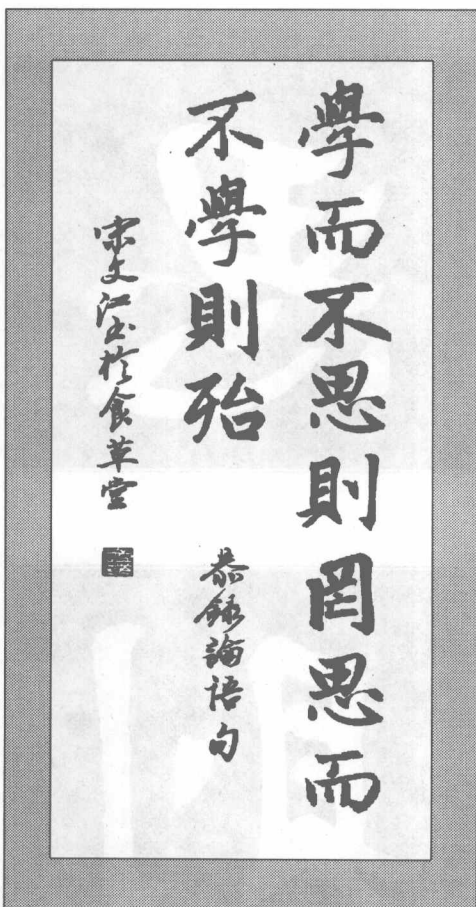 學而不思則罔思而
不學則殆
恭錄論語句
宋文江書於食草堂